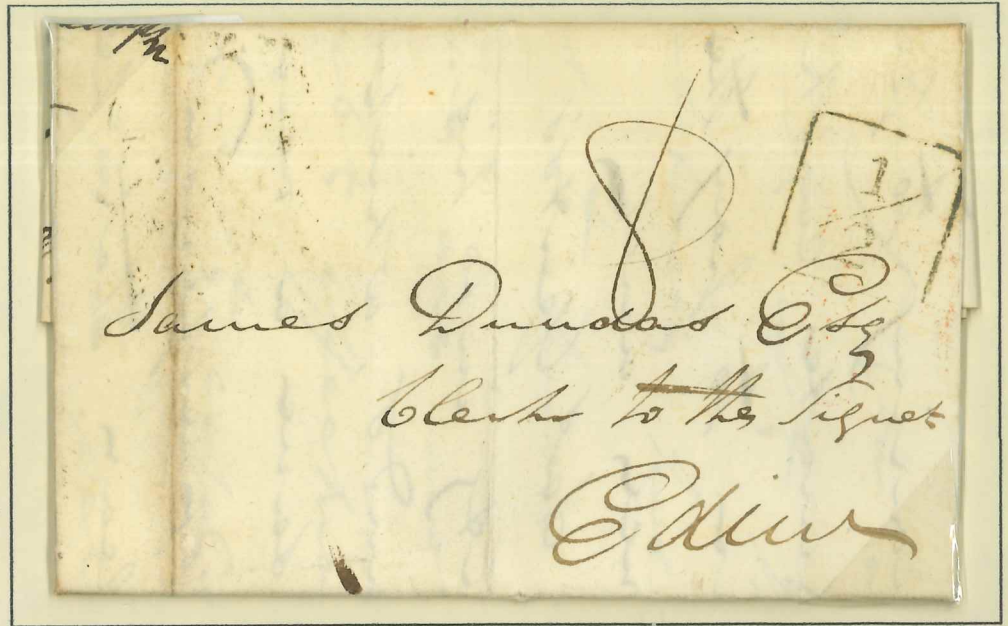 8
1/2
James Dundas Esq
Clerk to the Signet
Edinr